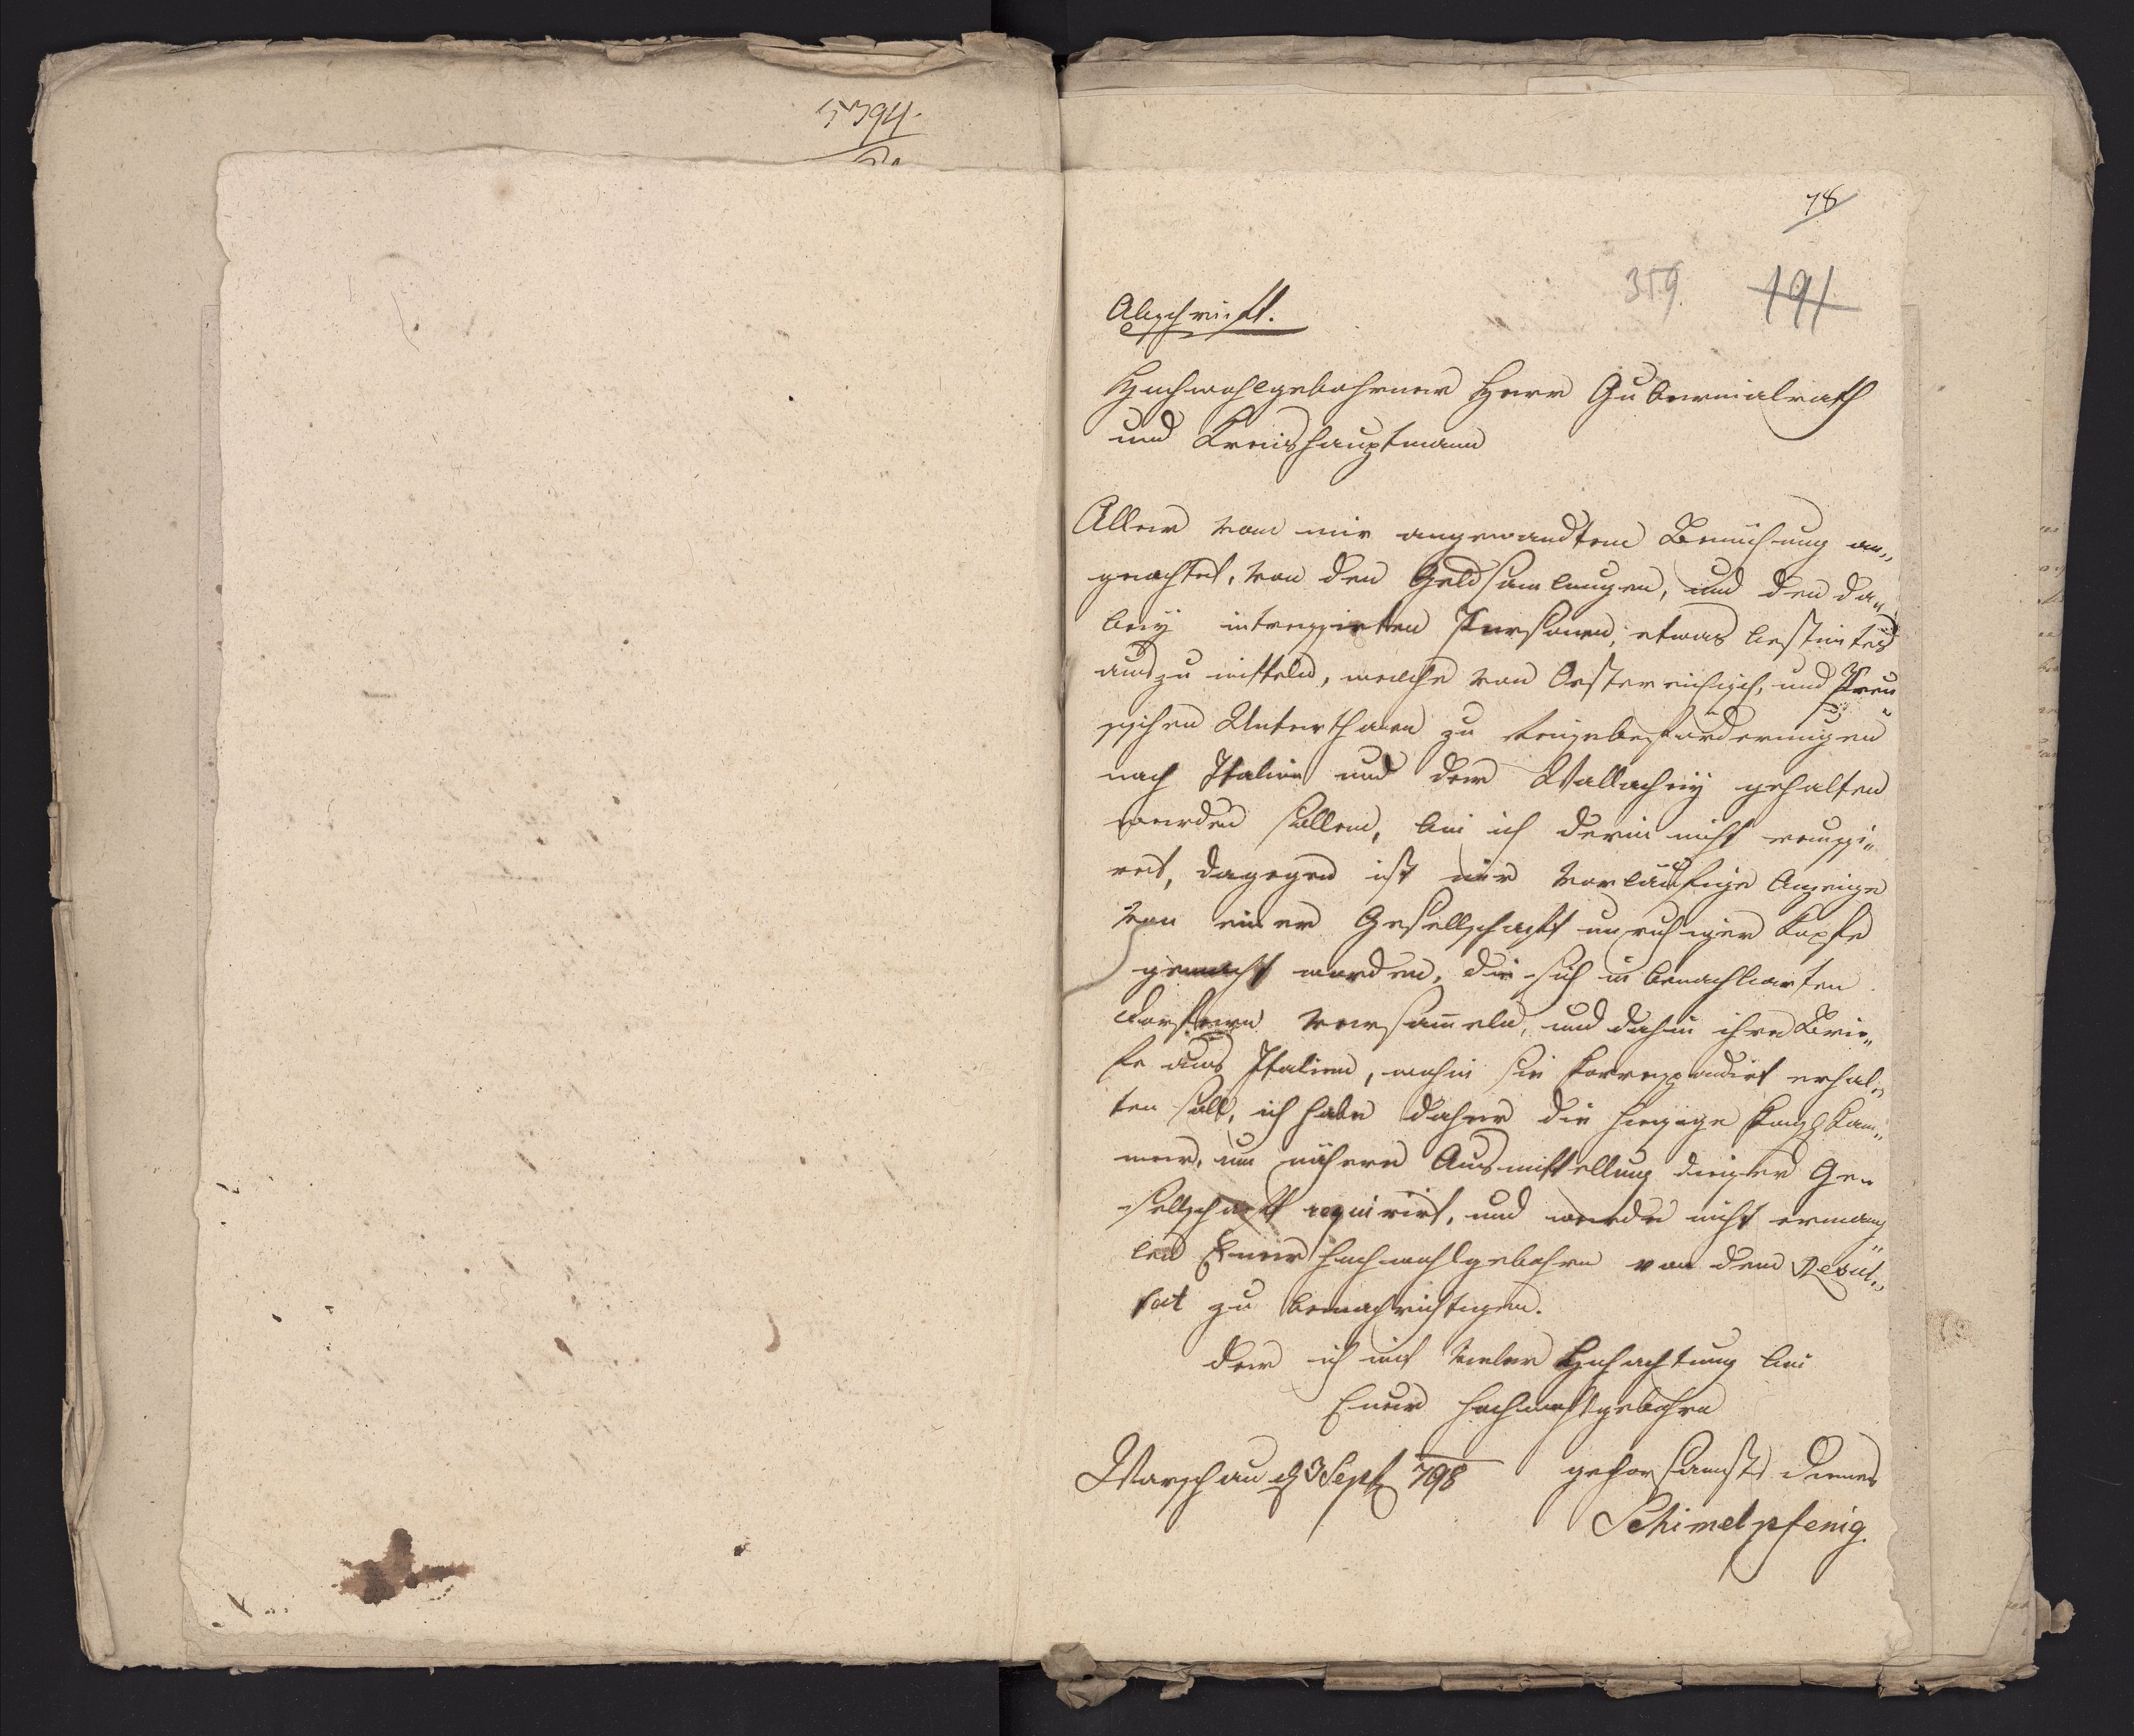 5394.
78
359. 191
Abschrift.
Hochwohlgebohrner Herr Gubernialrath
und Kreishauptmann
Aller von mir angewandten Bemühung un„
geachtet, von den Geldsamlungen, und den da„
bey interessirten Personen, etwas bestimtes
auszumitteln, welche von Oesterreichisch, und Preu„
ssischen Unterthanen zu Reisebeförderungen
nach Italien und der Wallachey gehalten
werden sollen, bin ich darin nicht reussi„
ret, dagegen ist mir vorläufige Anzeige
von einer Gesellschaft unruhiger Köpfe
gemacht worden, die sich in benachbarten
Dörfern versam̄eln, und dahin ihre Brie„
fe aus Italien, wohin sie korrespondirt erhal„
ten soll, ich habe daher die hiesige Königl Kam„
mer, um nähere Ausmittellung dieser Ge„
sellschaft requirirt, und werde nicht ermang
len Euer Hochwohlgebohrn von dem Resul„
tat zu benachrichtigen.
Der ich mit vieler Hochachtung bin
Euer Hochwohlgebohrn
Warschau d 3 Sept 798 gehorsamster Diener
Schimelpfenig.